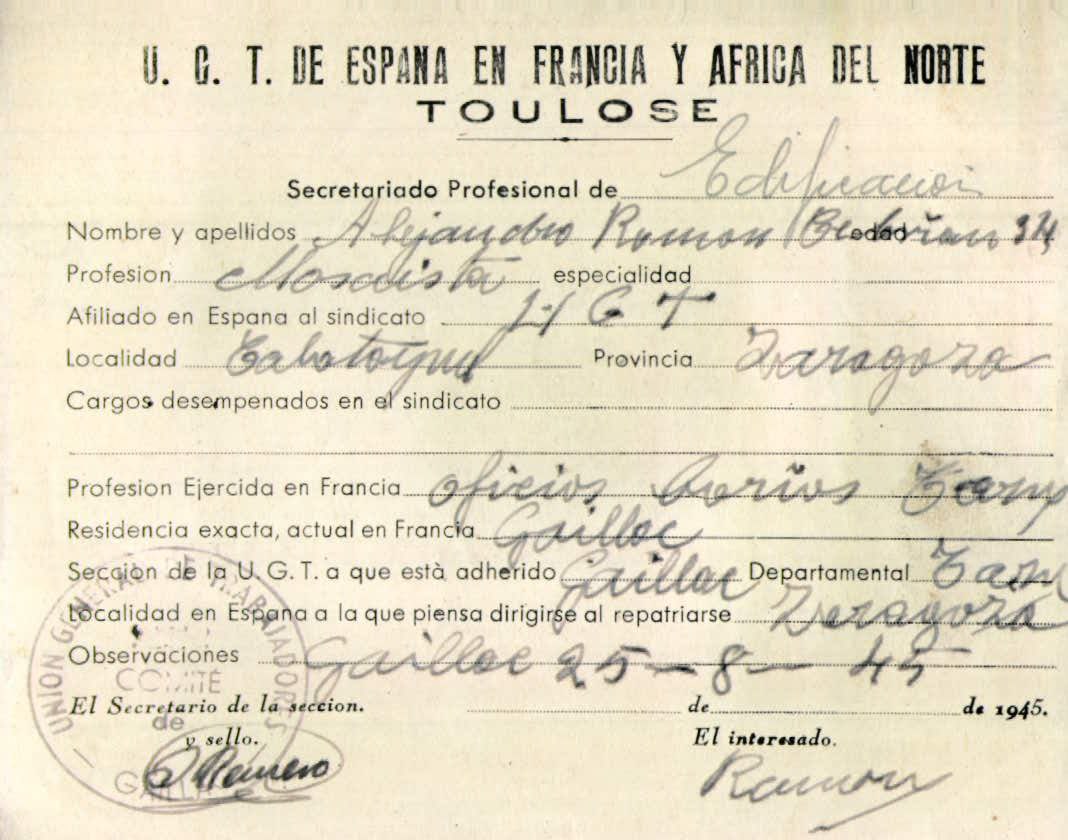 U. G. T. DE ESPANA EN FRANCIA Y AFRICA DEL NORTE
TOULOSE
Secretariado Profesional de Edificacion
Nombre y apellidos Alejandro Ramon edad 34
Profesion Mosaista especialidad
Afiliado en Espana al sindicato U G T
Localidad Provincia Zaragoza
Cargos desempenados en el sindicato
Profesion Ejercida en Francia oficios
Residencia exacta, actual en Francia Gaillac
Sección de la U. G. T. a que està adherido Gaillac Departamental Tarn
Localidad en Espana a la que piensa dirigirse al repatriarse Zaragoza
Observaciones Gaillac 25-8-45
El Secretario de la seccion. de de 1945.
y sello. El interesado.
UNION GENERAL DE TRABAJADORES
COMITÉ
de
GAILLAC
Romero
Ramon